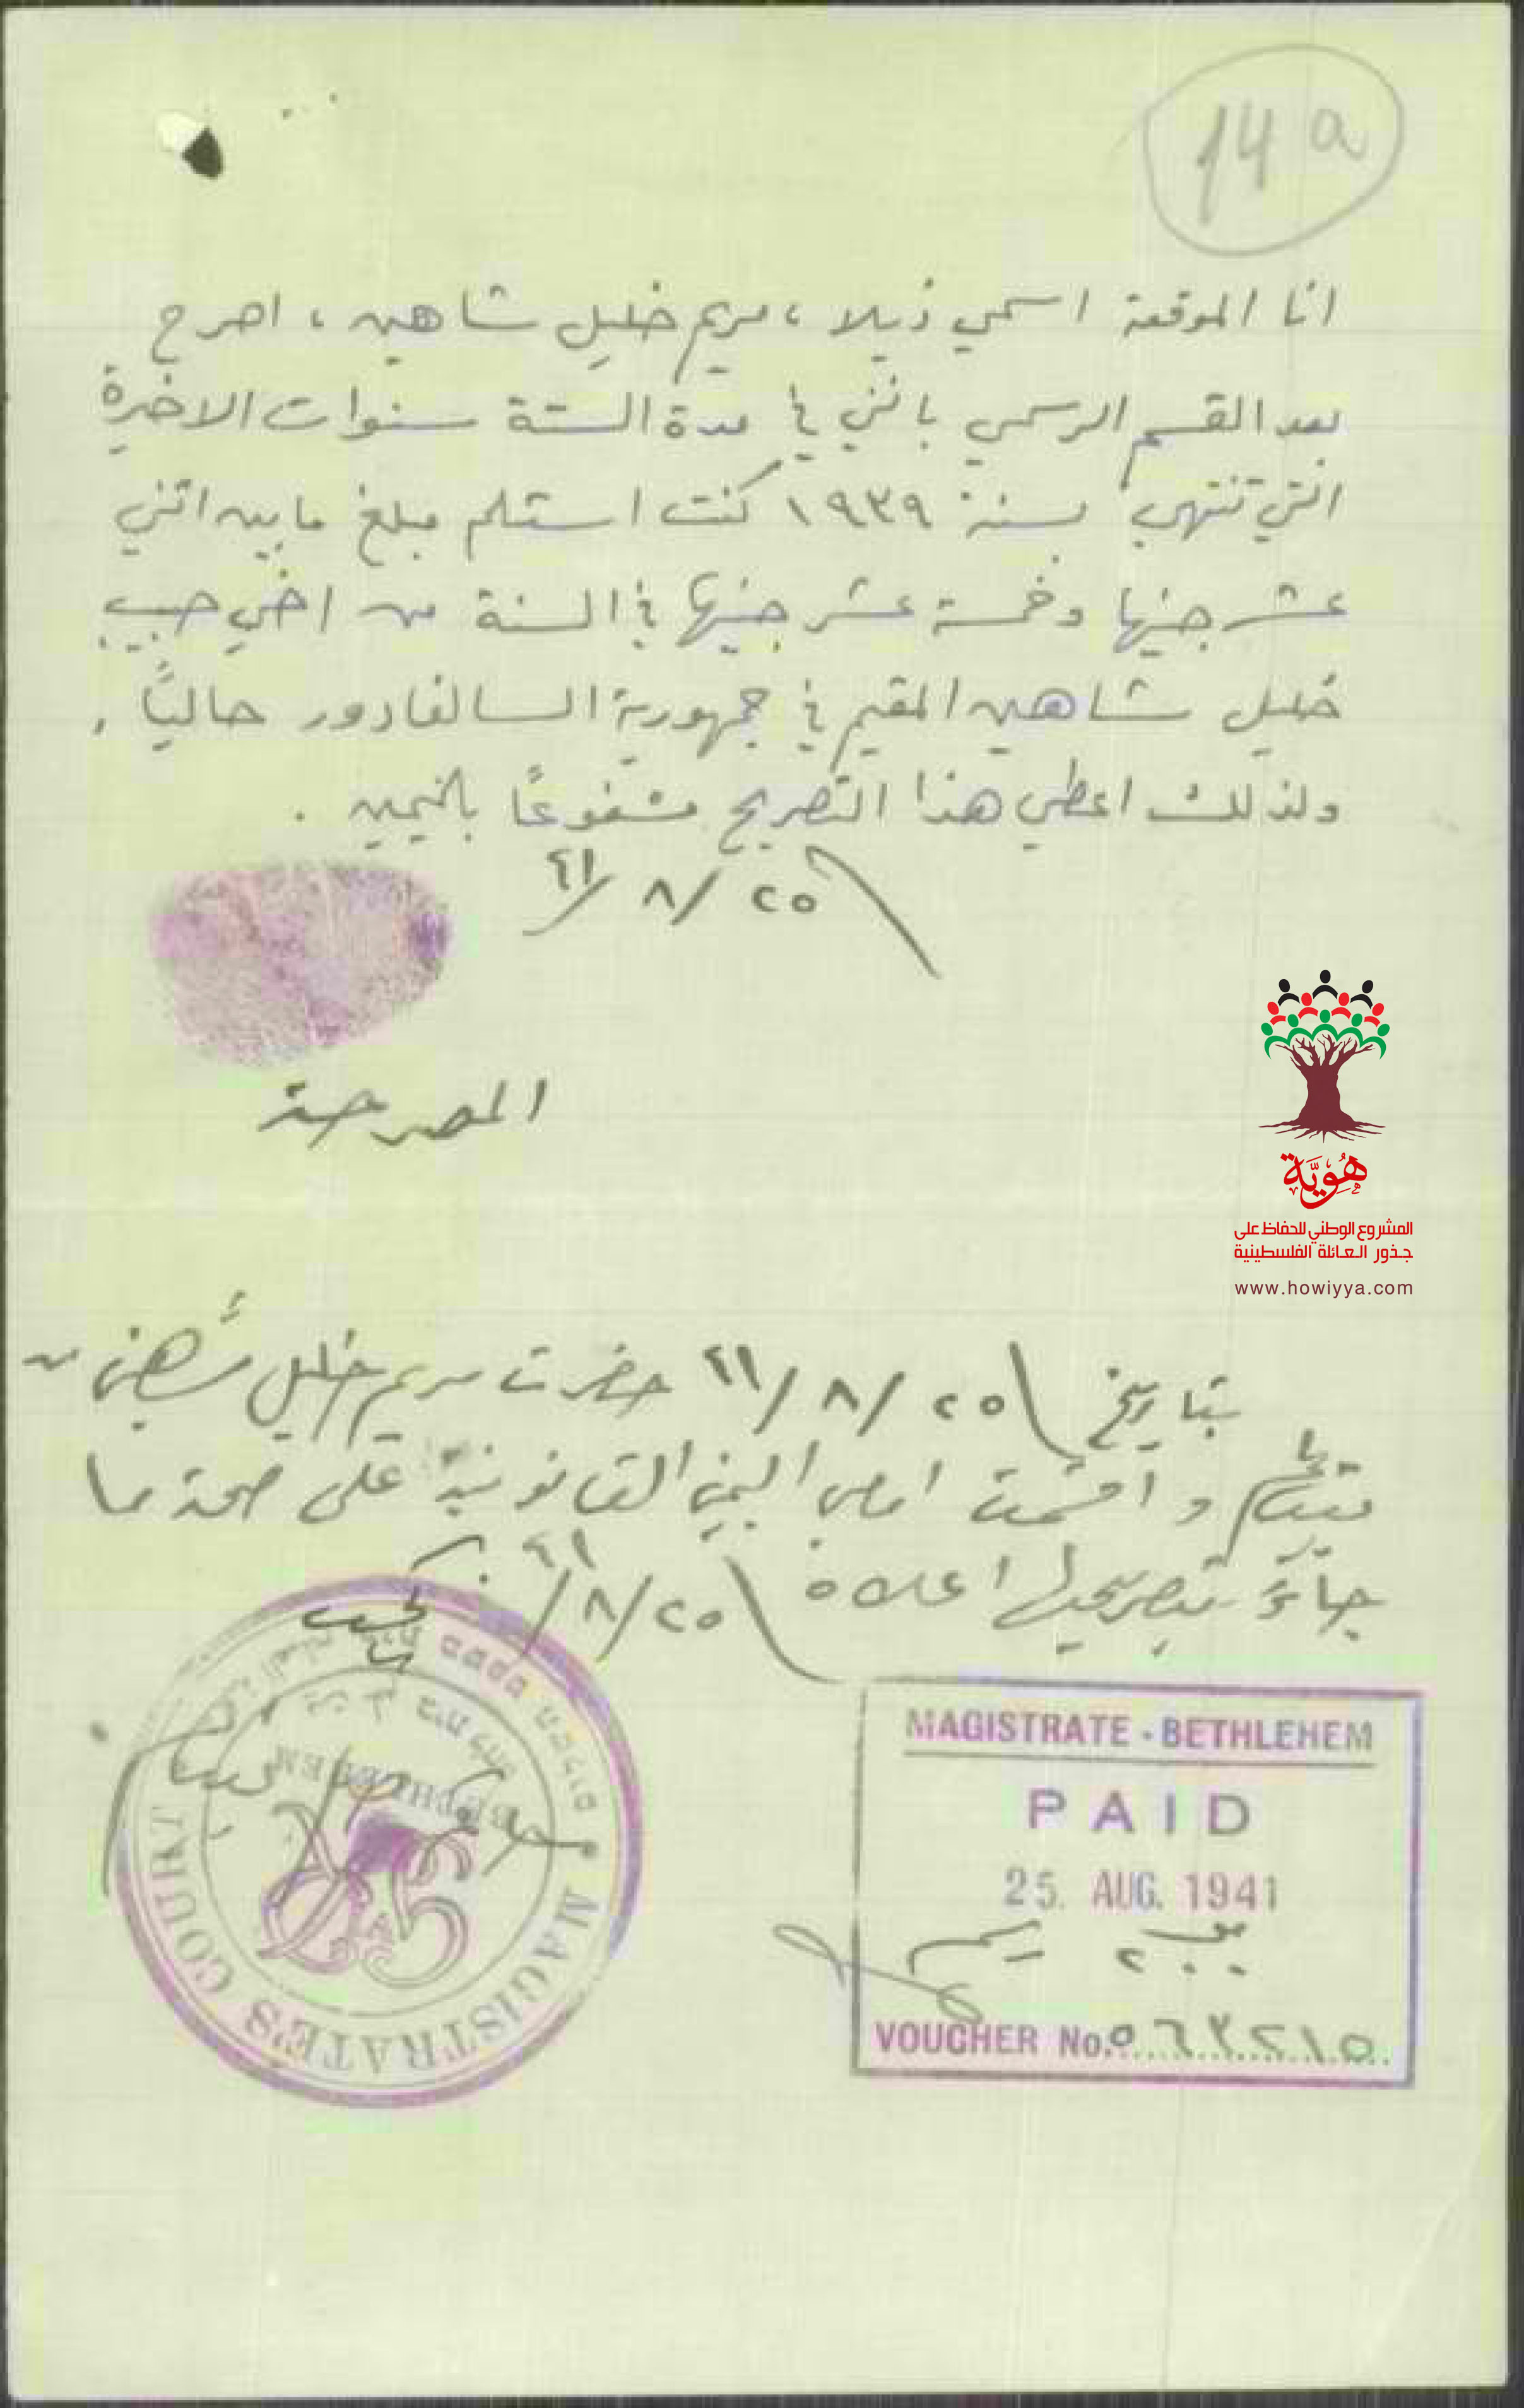 14 a
انا الموقعة اسمي ذيلا ، مريم خليل شاهين ، اصرح
بعد القسم الرسمي بانني في مدة الستة سنوات الاخيرة
التي تنتهي بسنة ١٩٣٩ كنت استلم مبلغ ما بين اثني
عشر جنيها وخمسة عشر جنيها في السنة من اخي حبيب
خليل شاهين المقيم في جمهورية السالفادور حالياً .
ولذلك اعطي هذا التصريح مشفوعاً باليمين .
٢٥/٨/٤١
المصرحة
هُوِيَّة
المشروع الوطني للحفاظ على
جذور العائلة الفلسطينية
www.howiyya.com
بتاريخ ٢٥/٨/٤١ حضرت مريم خليل شاهين من
واقسمت امامي اليمين القانونية على صحة ما
جاء بتصريحها اعلاه ٢٥/٨/٤١
MAGISTRATES COURT
BETHLEHEM
MAGISTRATE - BETHLEHEM
PAID
25. AUG. 1941
VOUCHER No.